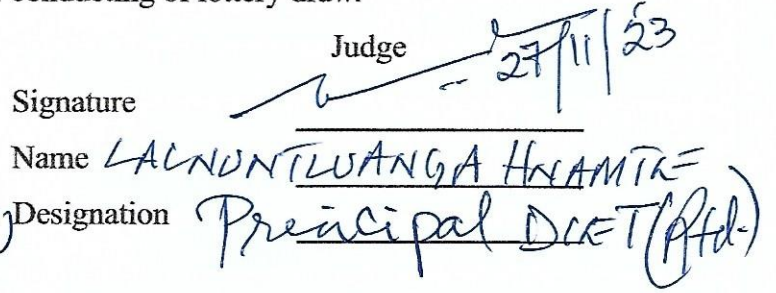 conducting of lottery draw.
Judge
27/11/23
Signature
Name LALNUNTLUANGA HNAMTE
Designation Principal DIET (Rtd.)